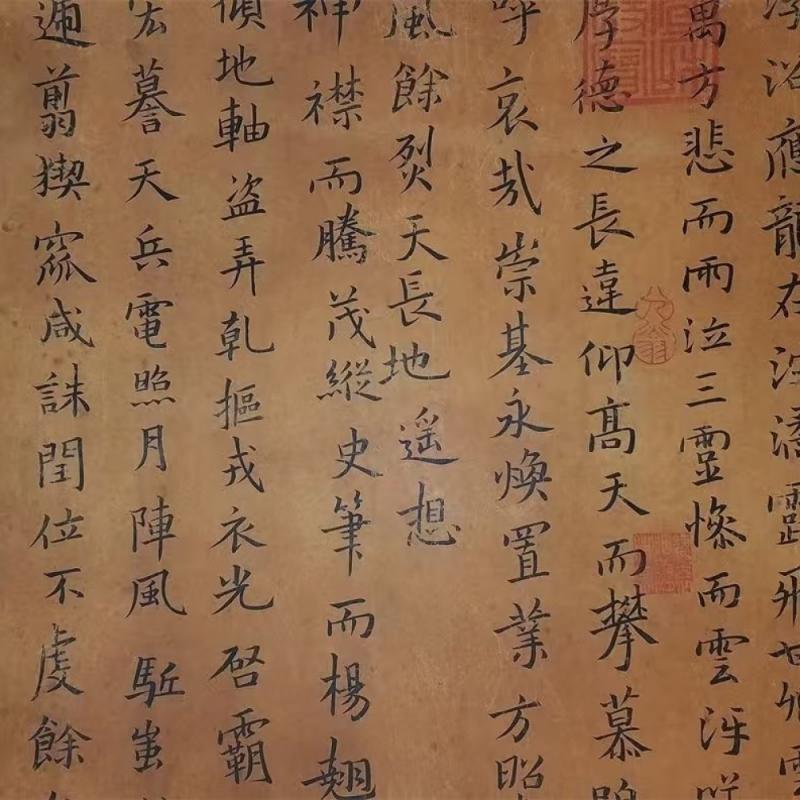 應龍在
萬方悲而雨泣三靈慘而雲
厚德之長違仰髙天而攀慕
呼哀哉崇基永煥置業方昭
風餘烈天長地遥想
神襟而騰茂縱史筆而楊翹
傾地軸盗弄乾摳戎衣光啓霸
宏謩天兵電照月陣風駈蚩
邇翦猰窳咸誅閏位不虔餘